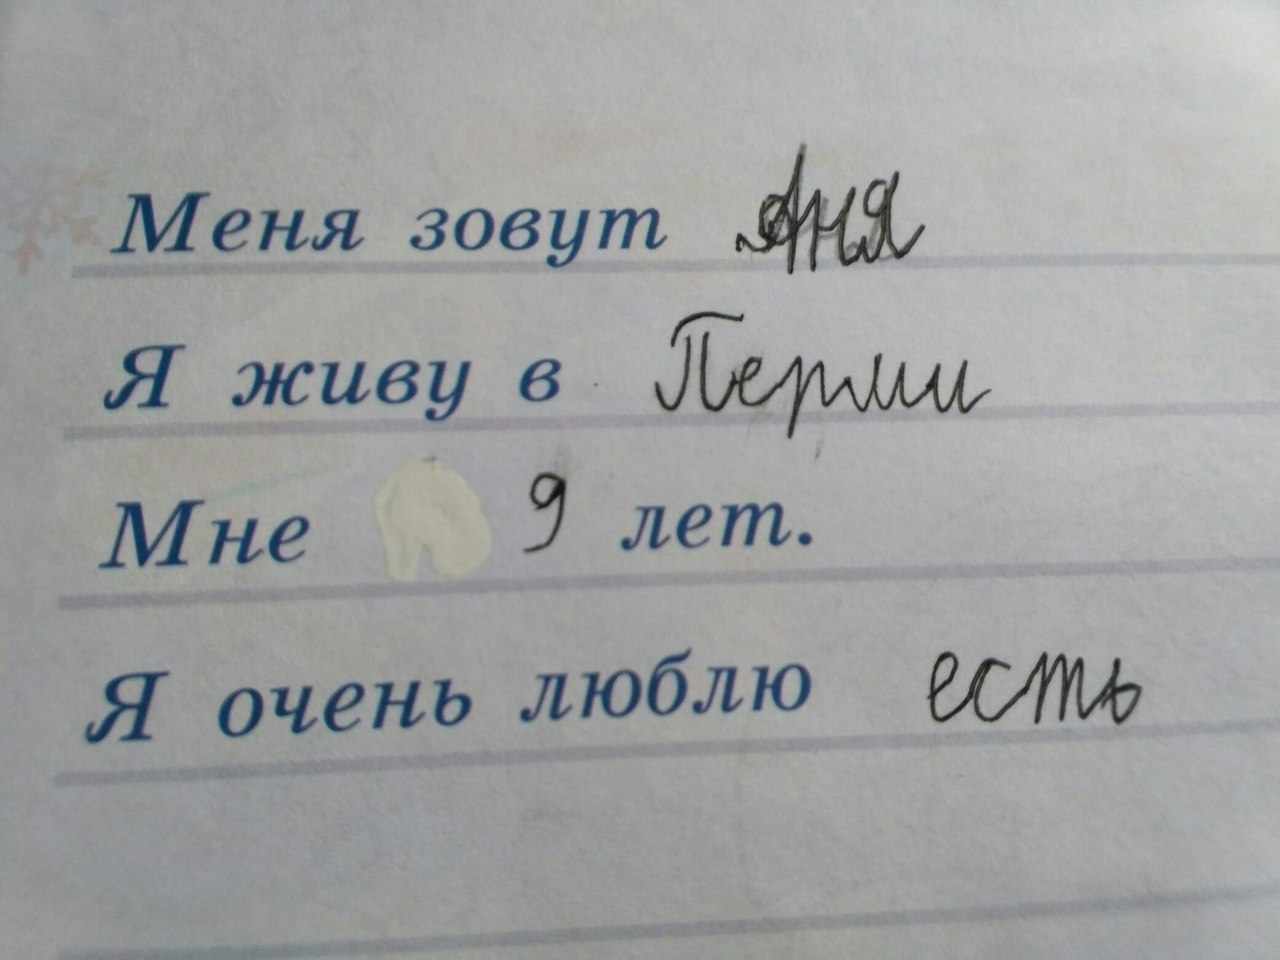 Меня зовут Аня
Я живу в Перми
Мне 9 лет.
Я очень люблю есть